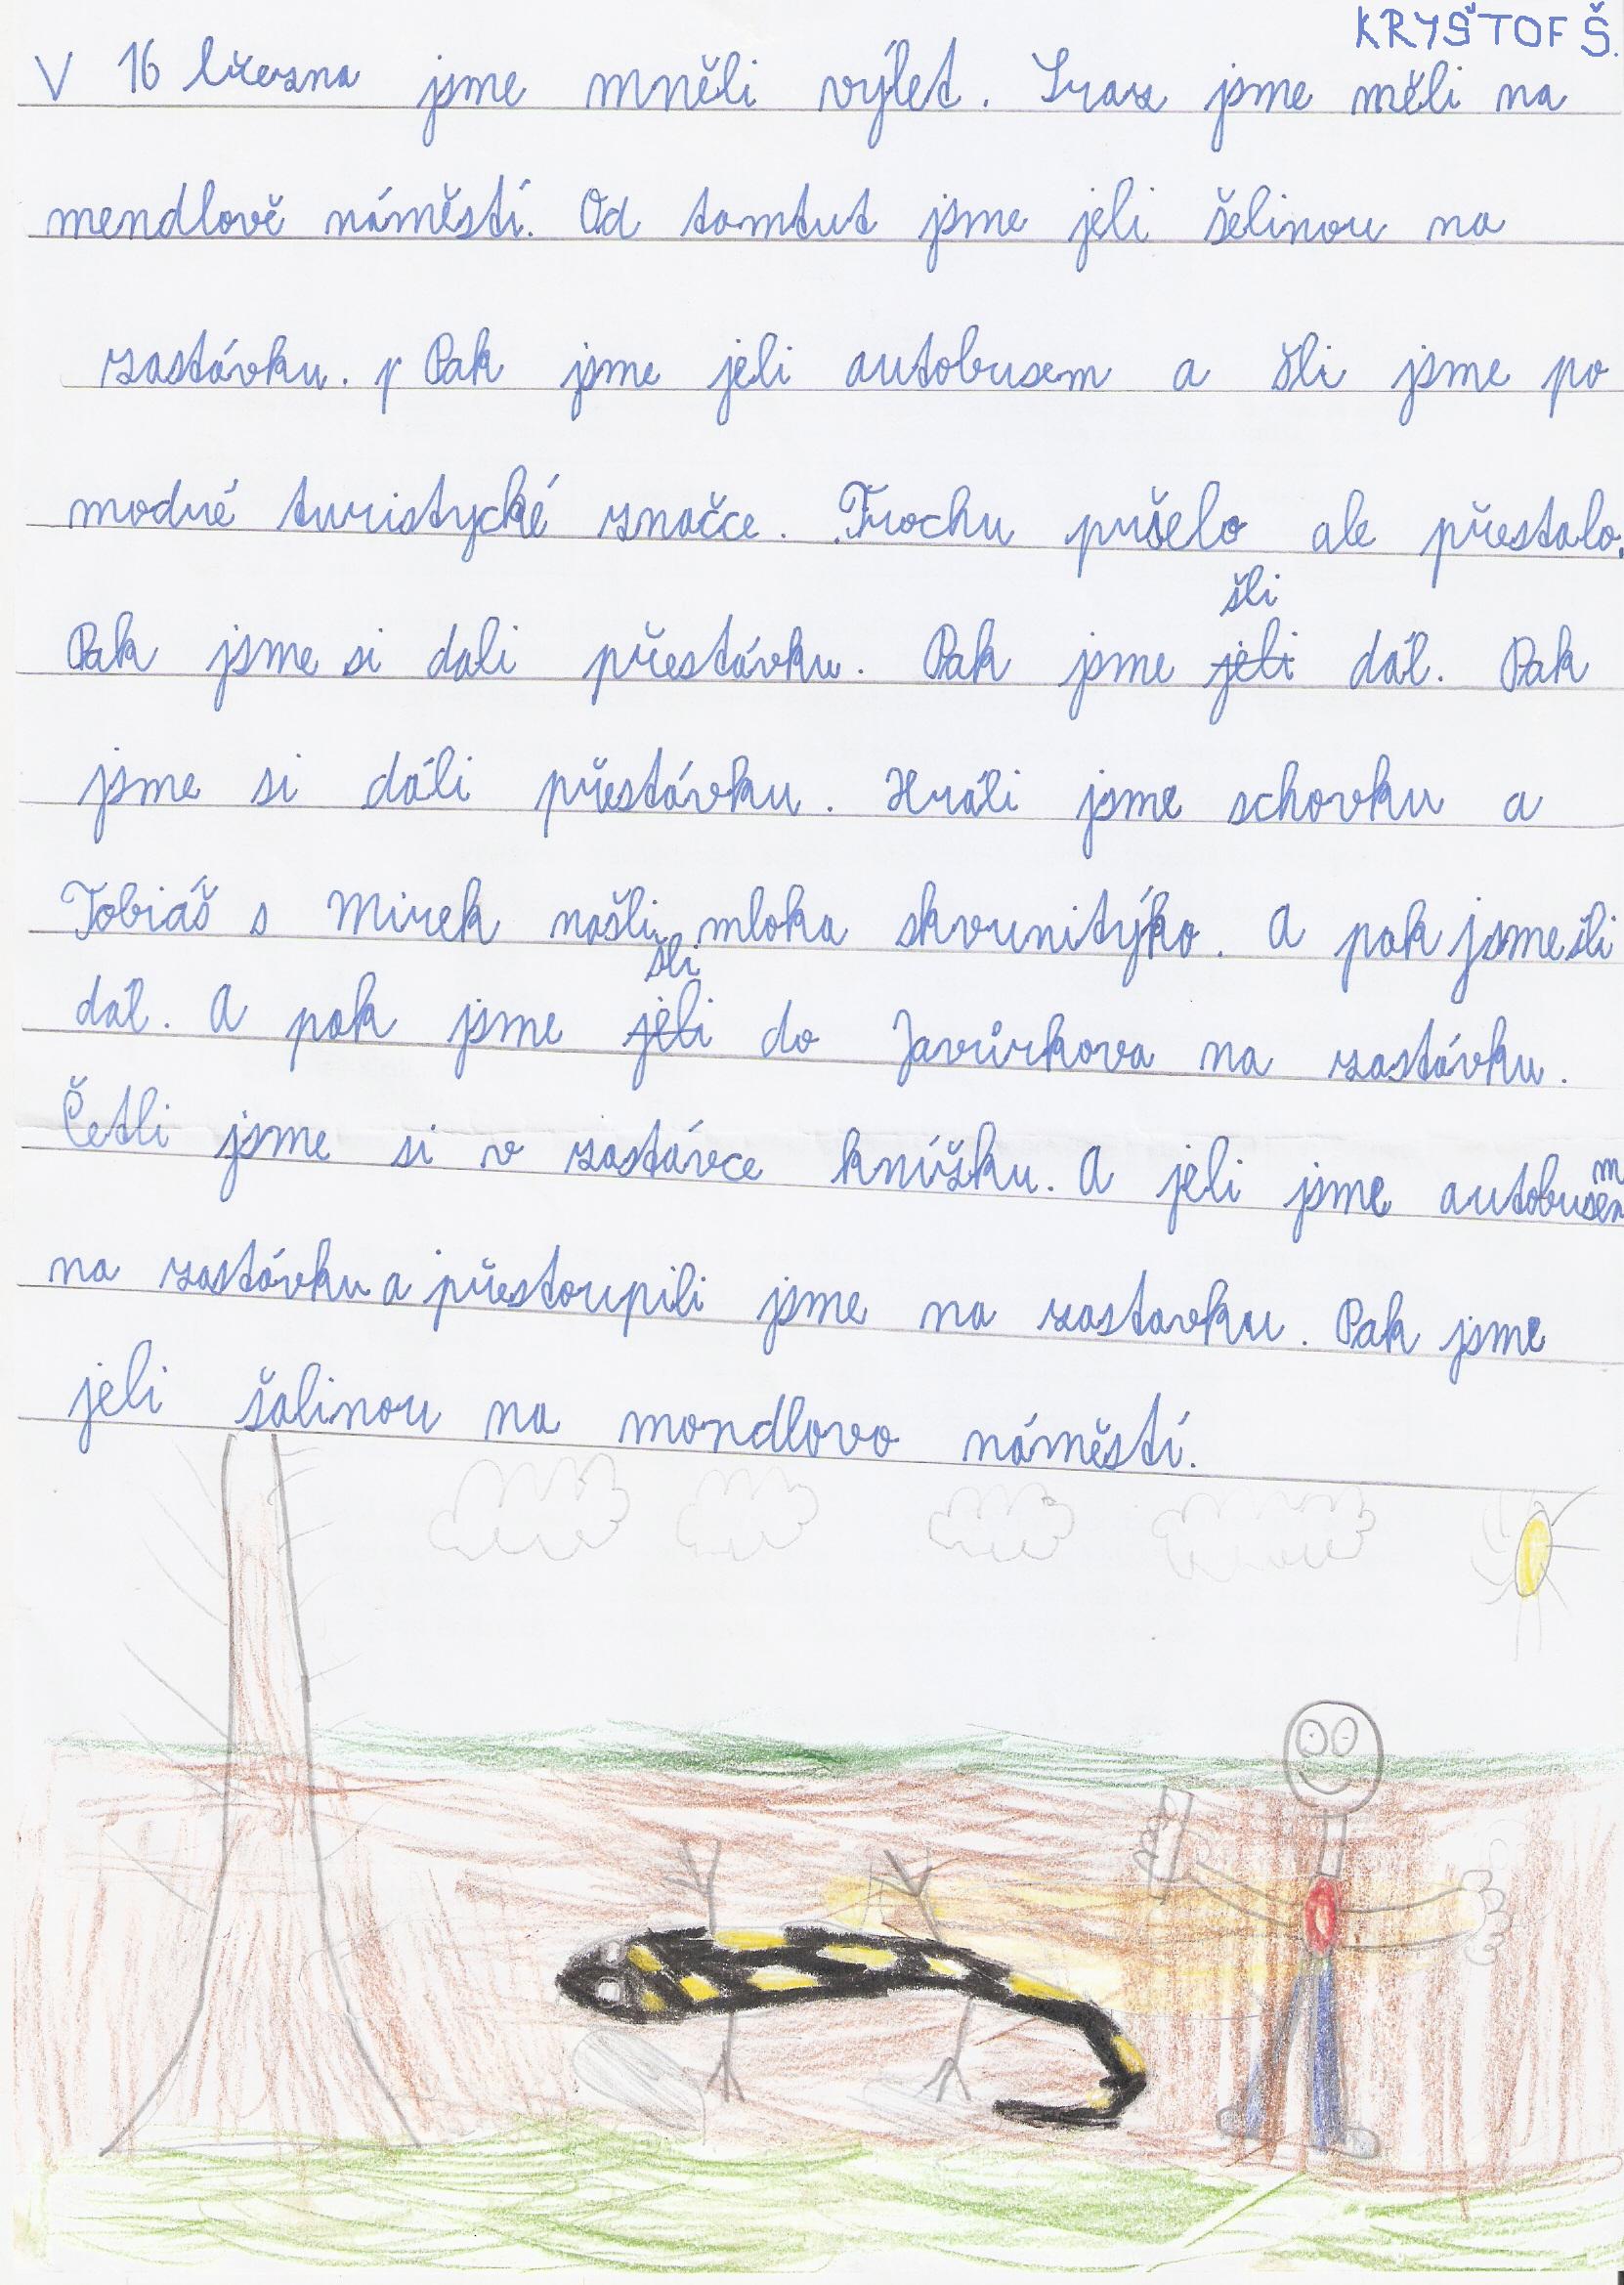 KRYŠTOF Š.
V 16 března jsme mněli výlet. Sraz jsme měli na
mendlově náměstí. Od tamtut jsme jeli šelinou na
zastávku. Pak jsme jeli autobusem a šli jsme po
modré turistycké značce. Trochu pršelo ale přestalo.
šli
Pak jsme si dali přestávku. Pak jsme jeli dál. Pak
jsme si dáli přestávku. Hráli jsme schovku a
Tobiáš s Mirek našli mloka skvrnitýho. A pak jsme šli
šli
dál. A pak jsme jeli do Javůrkova na zastávku.
Četli jsme si v zastávce knížku. A jeli jsme autobusem
na zastávku a přestoupili jsme na zastavku. Pak jsme
jeli šalinou na mondlovo náměstí.